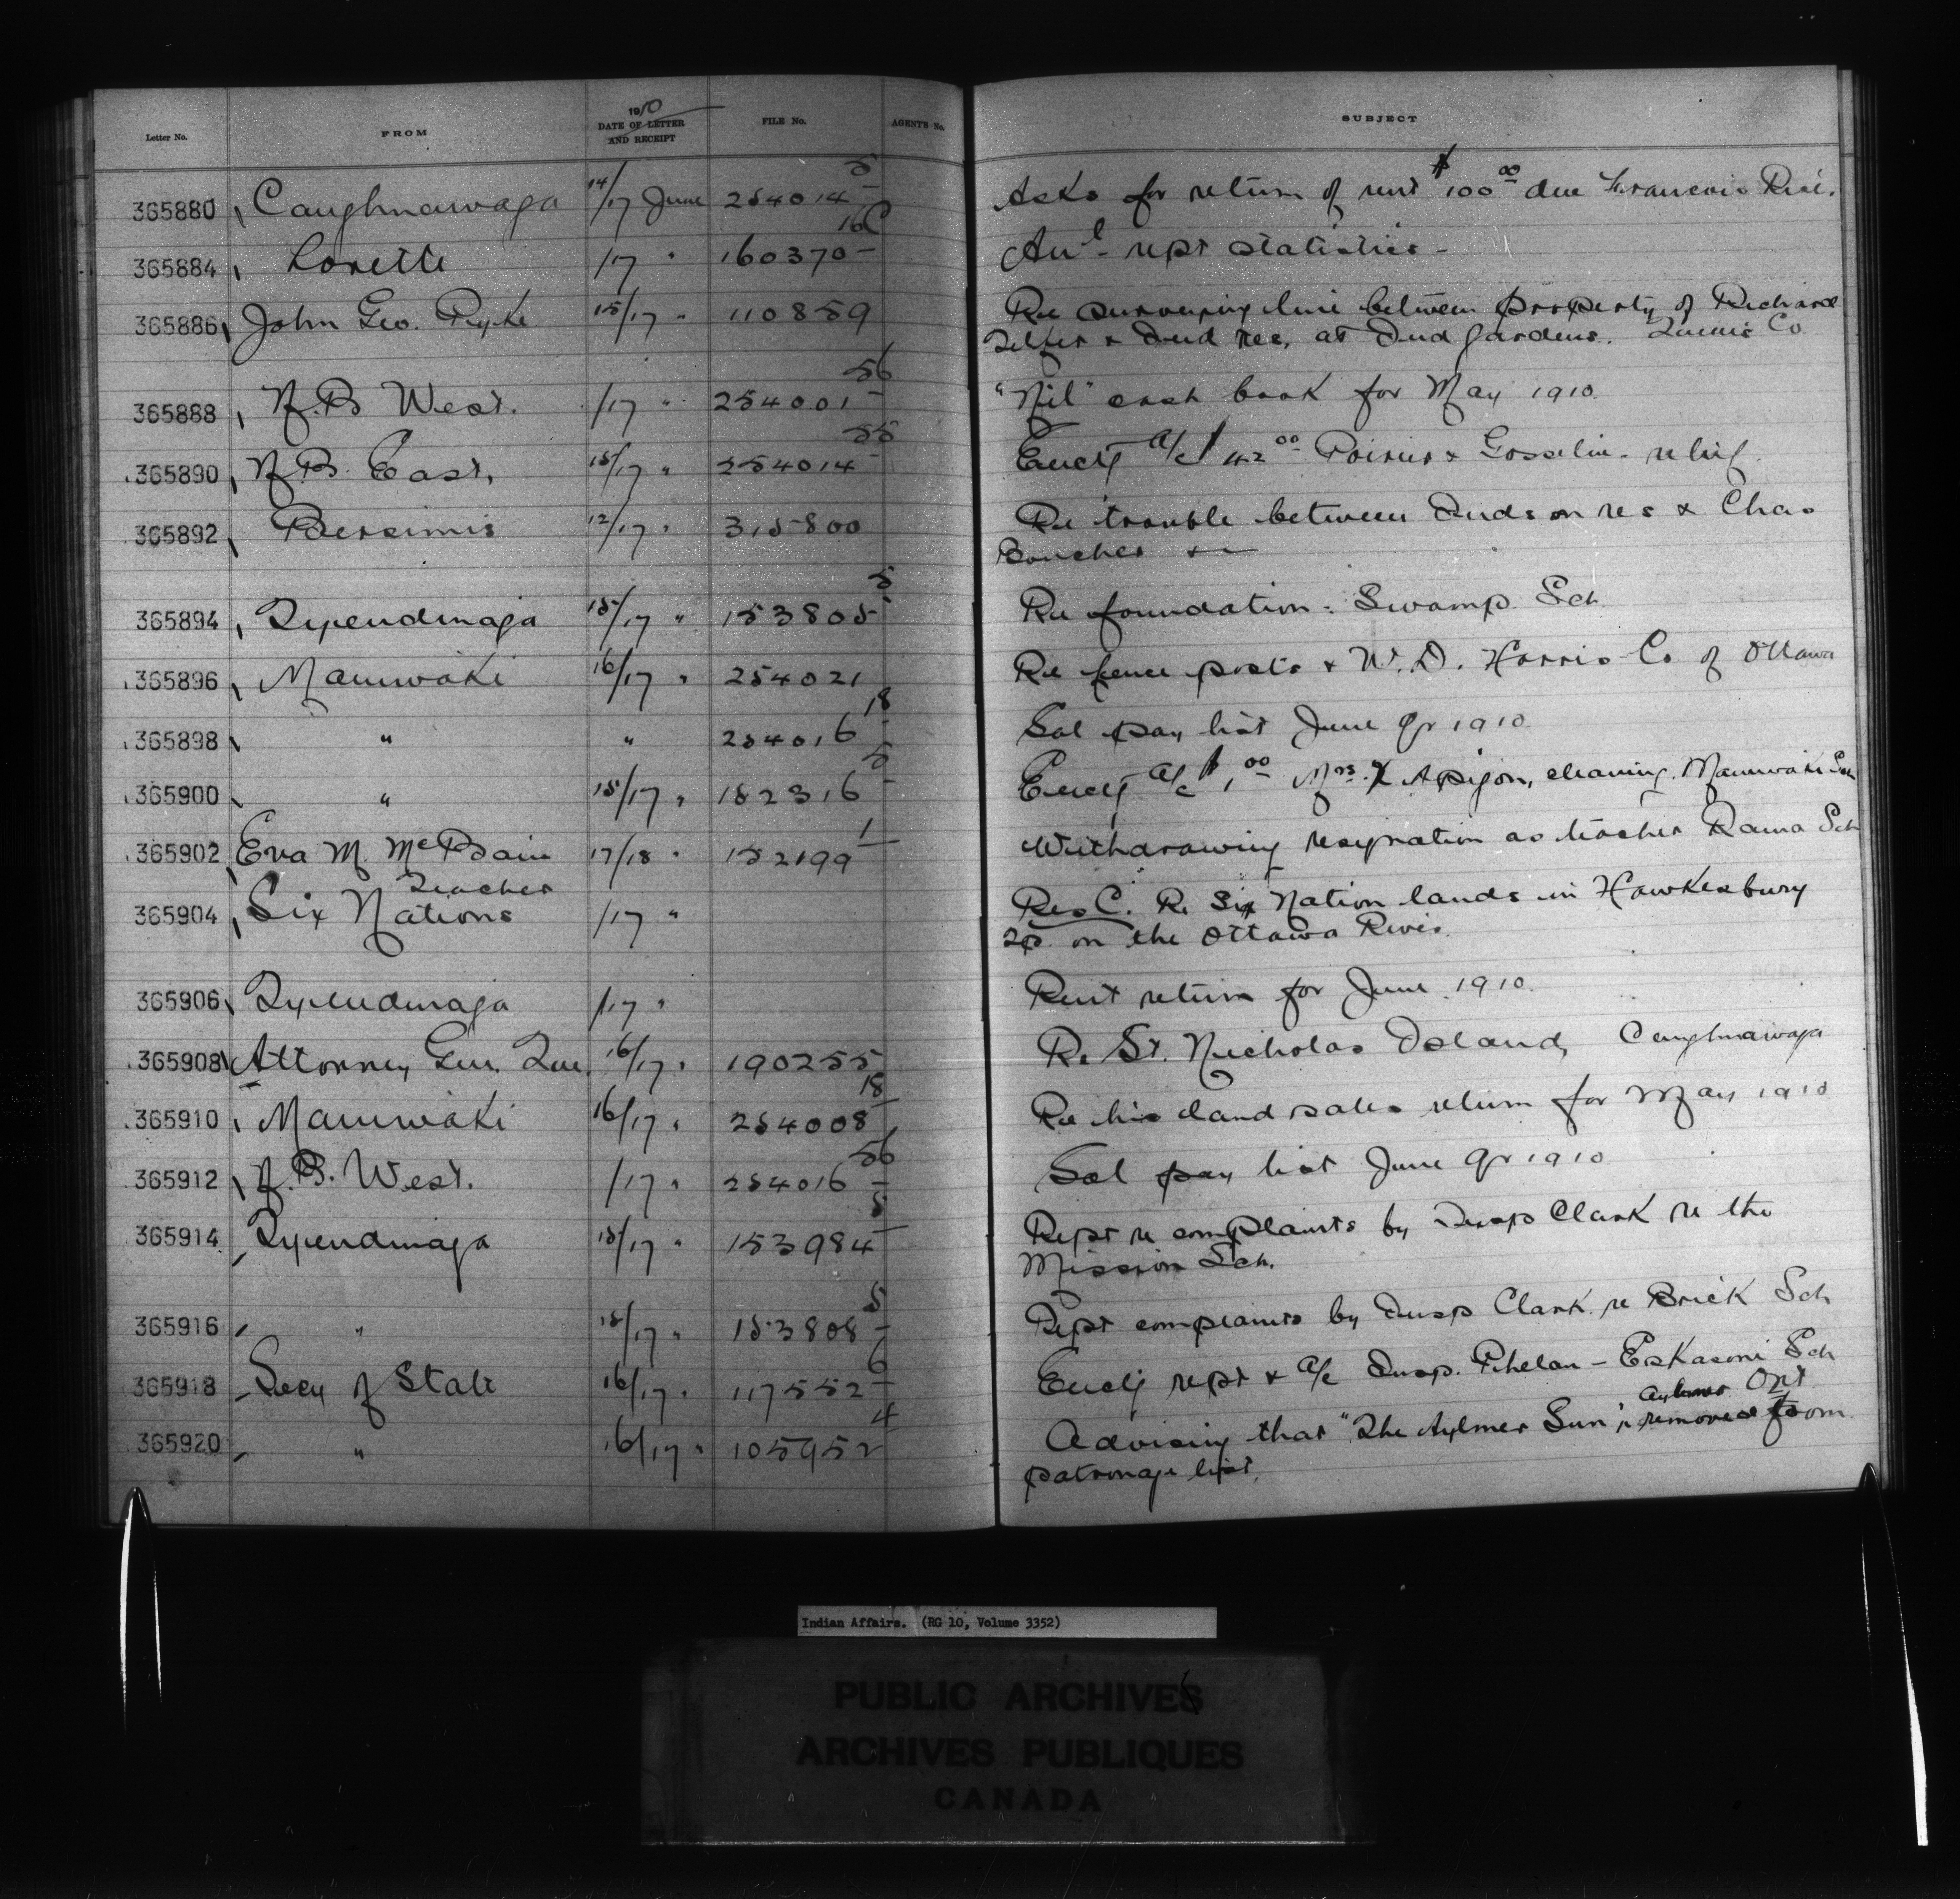 Letter No. FROM 1910 DATE OF LETTER AND RECEIPT FILE No. AGENT'S No. SUBJECT
365880 Caughnawaga 14/17 June 254014-5 Asks for return of rent $100.00 due Francois
365884 Lorette /17 " 160370-16C Anl rept statistics -
365886 John Geo. Pyke 15/17 " 110859 Re surveying line between property of Richard
Telfer & Ind res. at Ind Gardens. Queens Co
365888 N.B West. /17 " 254001-56 "Nil" cash book for May 1910
365890 N.B. East, 15/17 " 254014-55 Enclg a/c $42.00 Poirier & Gosselin - relief
365892 Bersimis 12/17 " 315800 Re trouble between Inds on res & Chas
Boucher &-
365894 Tyendinaga 15/17 " 153805-5 Re foundation - Swamp Sch
365896 Maniwaki 16/17 " 254021 Re fence posts & W.D. Harris Co of Ottawa
365898 " " 254016-18 Sal pay list June Qr 1910
365900 " 15/17 " 182316-5 Enclg a/c $1.00 Mrs. cleaning Maniwaki Sch
365902 Eva M. McBain 17/18 " 152199-1 Withdrawing resignation as teacher Rama Sch
Teacher
365904 Six Nations /17 " Res C. Re Six Nation lands in Hawkesbury
Tp. on the Ottawa River.
365906 Tyendinaga /17 " Rent return for June 1910
365908 Attorney Gen. Que. 16/17 " 190255 Re St. Nicholas Island, Caughnawaga
365910 Maniwaki 16/17 " 254008-18 Re his land sales return for May 1910
365912 N.B. West. /17 " 254016-56 Sal pay list June Qr 1910
365914 Tyendinaga 15/17 " 153984-5 Rept re complaints by Insp Clark re the
Mission Sch.
365916 " 15/17 " 153808-5 Rept complaints by Insp Clark re Brick Sch
365918 Secy of State 16/17 " 117552-6 Enclg rept & a/c Insp. Phelan - Eskasoni Sch
365920 " 16/17 " 105952-4 Advising that "The Aylmer Sun", Aylmer Ont is removed from
patronage list.
Indian Affairs. (RG 10, Volume 3352)
PUBLIC ARCHIVES
ARCHIVES PUBLIQUES
CANADA